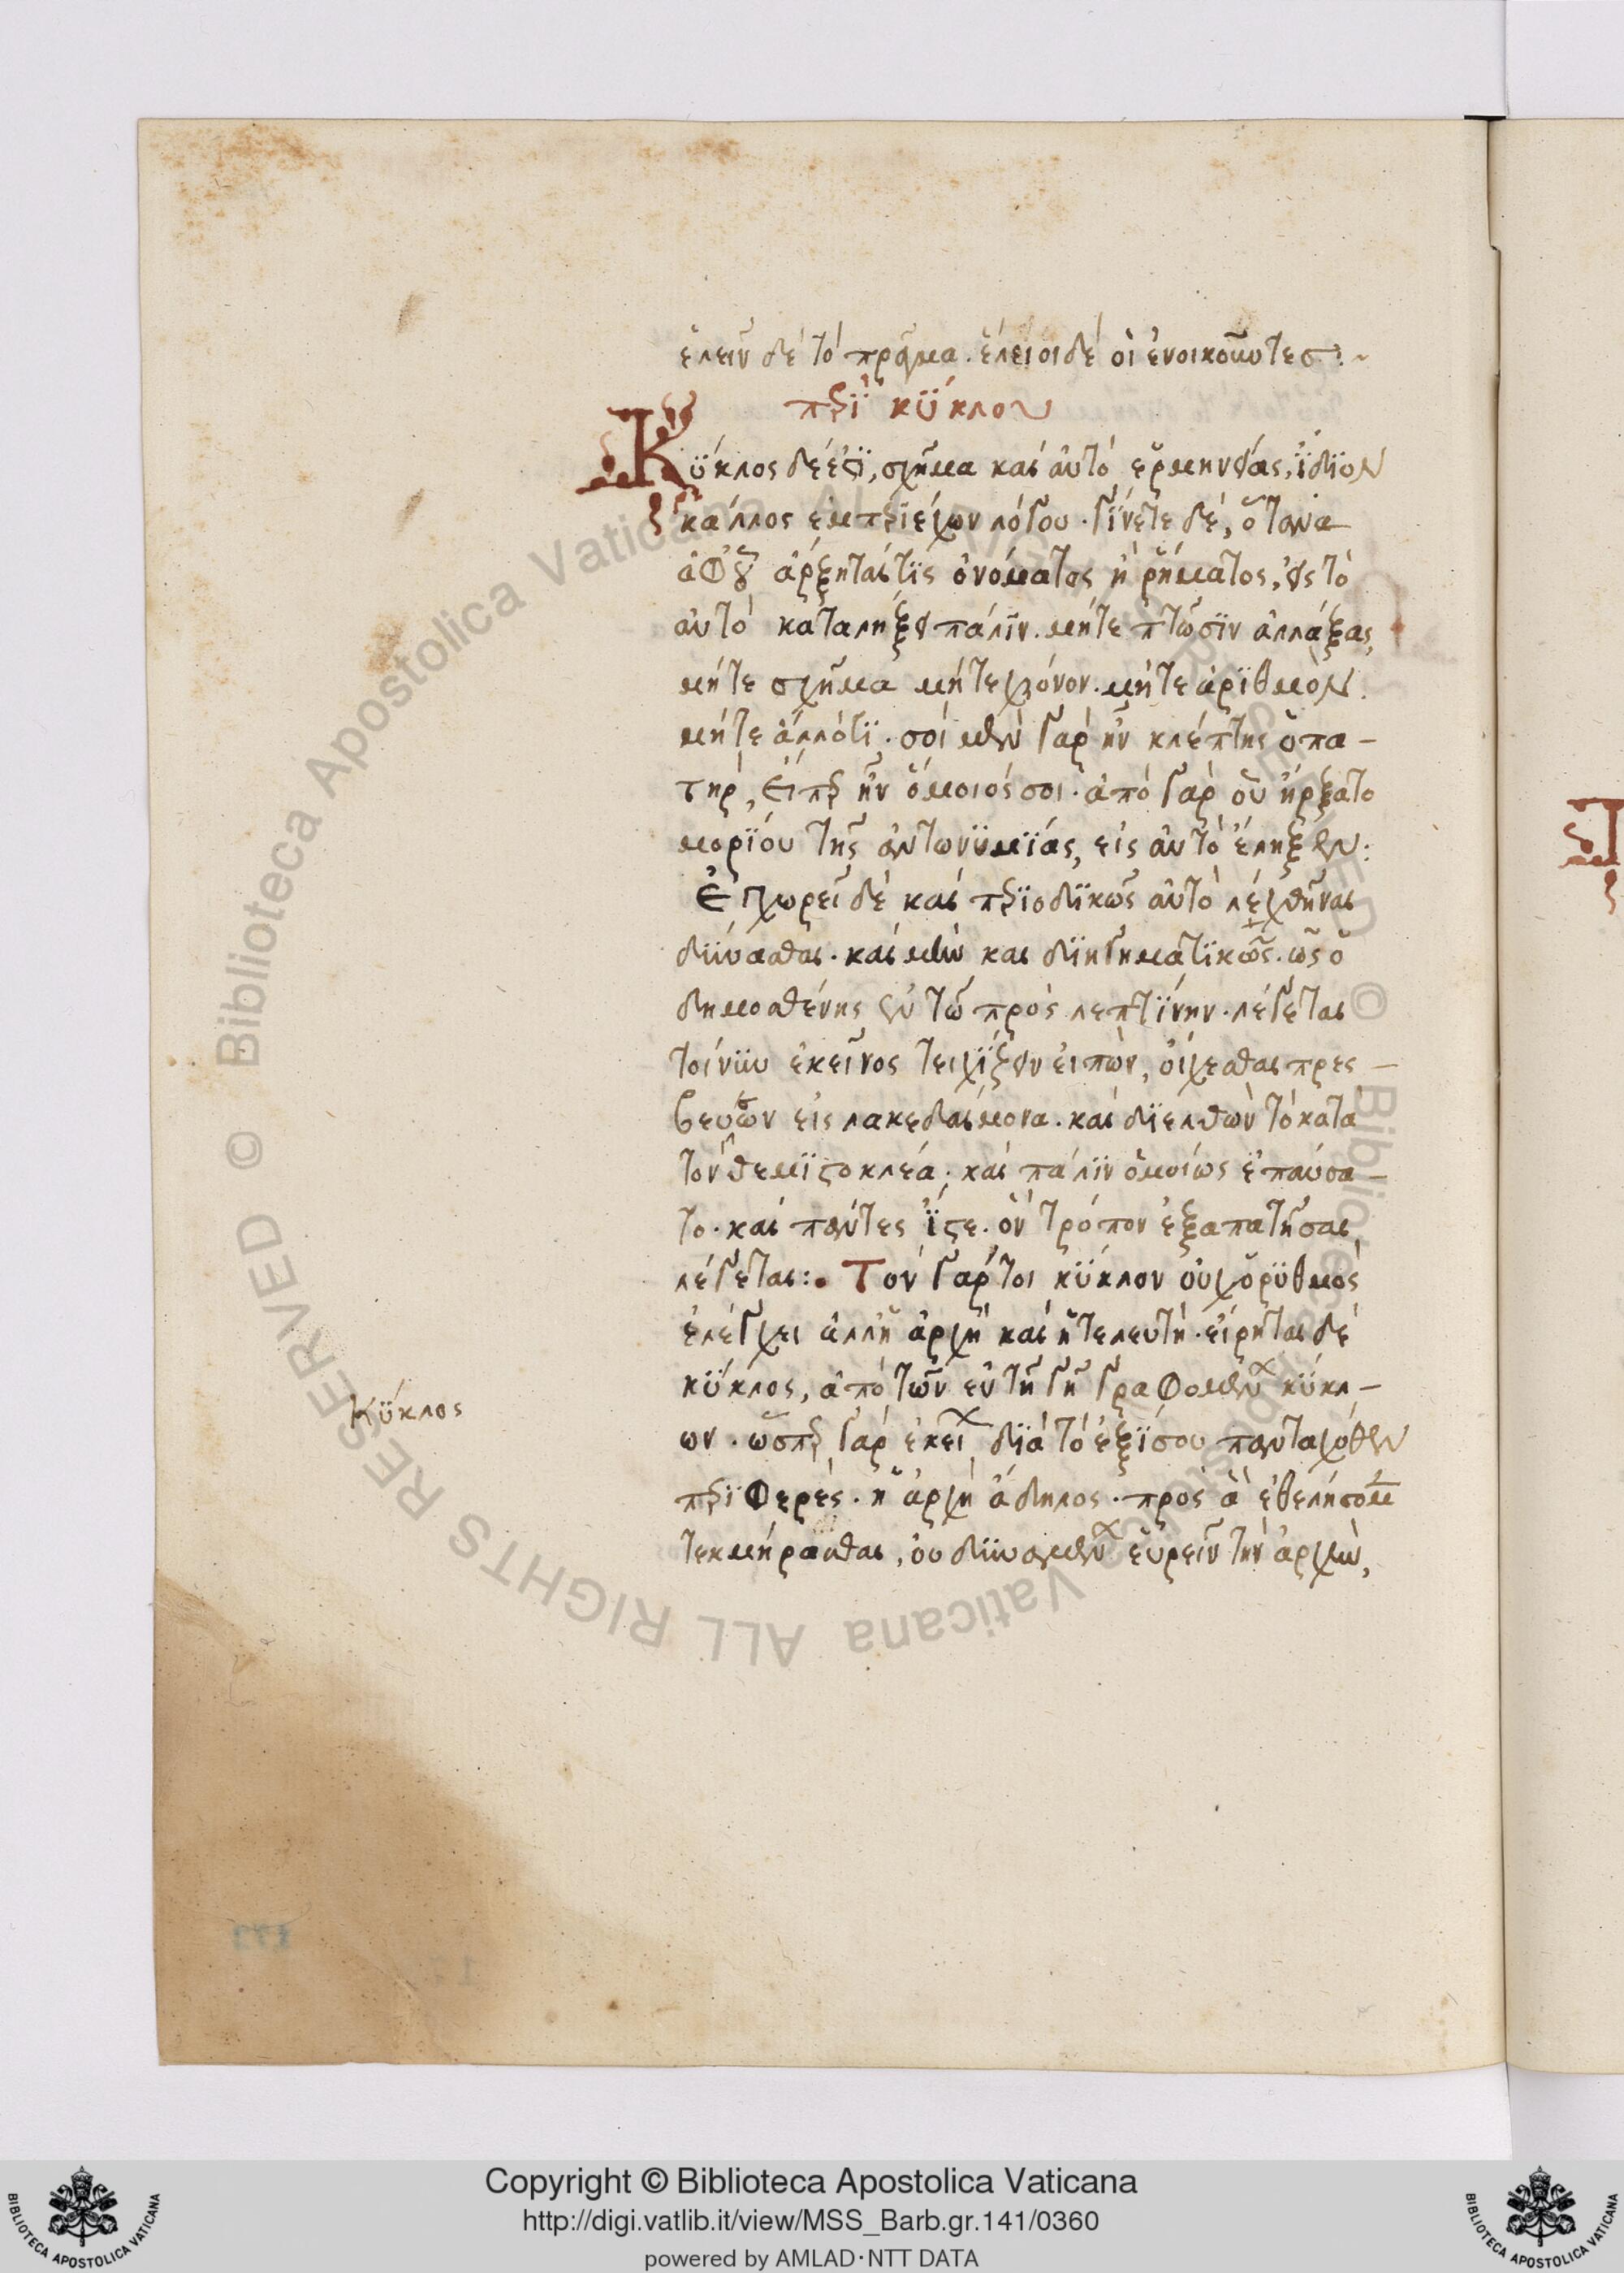 ἐλεῖν δὲ τὸ πρᾶγμα. ἔλειοι δέ οἱ ἐνοικοῦντες :~
περὶ κύκλου
Κύκλος δέ ἐστϊ, σχῆμα καὶ αὐτὸ ἑρμηνείας, ἴδϊον
κάλλος ἐμπεριέχων λόγου. γίνετε δέ, ὅταν
ἀφοῦ ἄρξηται τϊς ὀνόματος ἢ ῥήματος, εἰς τὸ
αὐτὸ καταλήξει πάλϊν. μήτε πτῶσϊν ἀλλάξας,
μήτε σχῆμα μήτε χρόνον. μήτε ἀρϊθμὸν.
μήτε ἄλλό τϊ. σοὶ μὲν γὰρ ἦν κλέπτης ὁ πα-
τηρ, εἴπερ ἦν ὅμοιός σοι. ἀπὸ γὰρ οὗ ἤρξατο
μορϊόυ τῆς ἀντωνϋμϊάς, εἰς αὐτὸ ἔληξεν:
Ἐγχωρεῖ δὲ καὶ περϊοδϊκῶς αὐτὸ λεχθῆναι
δϋνασθαι. καὶ μὴν και δϊηγηματϊκῶς. ὡς ὁ
δημοσθένης ἐν τῶ πρὸς λεπτϊνην. λέγεται
τοίνϋν ἐκεῖνος τειχϊζειν ειπὼν, οἴχεσθαι πρεσ-
βευων εἰς λακεδαίμονα. και δϊελθὼν τὸ κατὰ
τὸν θεμϊστοκλέα. και πάλϊν ὁμοίως ἐπαύσα-
το. και πάντες ἴστε. ὃν τρόπον ἐξαπατῆσαι
λέγεται:. Τὸν γάρ τοι κϋκλον οὐχ ὁ ρϋθμὸς
ἐλέγχει ἀλλ' ἡ ἀρχὴ και ἡ τελευτὴ. εἴρηται δὲ
κϋκλος, ἀπὸ τῶν ἐν τῆ γῆ γραφομένων κϋκλ-
ων. ὥσπερ γὰρ ἐκεῖ δϊὰ τὸ ἐξϊσου πανταχόθεν
περϊφερὲς. ἡ ἀρχὴ ἄδηλος. πρὸς ἃ ἐθελήσομεν
τεκμήρασθαι, ου δϋνάμεθα εὑρεῖν τὴν ἀρχὴν,
Κϋκλος
Copyright © Biblioteca Apostolica Vaticana
http://digi.vatlib.it/view/MSS_Barb.gr.141/0360
powered by AMLAD·NTT DATA
BIBLIOTECA APOSTOLICA VATICANA
BIBLIOTECA APOSTOLICA VATICANA
© Biblioteca Apostolica Vaticana ALL RIGHTS RESERVED
© Biblioteca Apostolica Vaticana ALL RIGHTS RESERVED